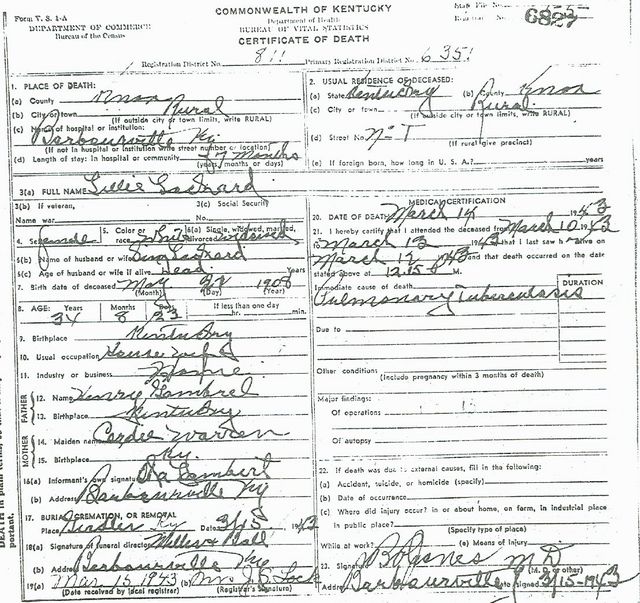 Form V. S. 1-A
DEPARTMENT OF COMMERCE
Bureau of the Census
COMMONWEALTH OF KENTUCKY
Department of Health
BUREAU OF VITAL STATISTICS
CERTIFICATE OF DEATH
State File No.
Registrar No. 6827
Registration District No. 811
Primary Registration District No. 6351
1. PLACE OF DEATH:
(a) County Knox
(b) City or town Rural
(If outside city or town limits, write RURAL)
(c) Name of hospital or institution:
Barbourville Ky
(If not in hospital or institution write street number or location)
(d) Length of stay: In hospital or community 37 Months
(years, months or days)
2. USUAL RESIDENCE OF DECEASED:
(a) State Kentucky (b) County Knox
(c) City or town Rural
(If outside city or town limits, write RURAL)
(d) Street No.
(If rural give precinct)
(e) If foreign born, how long in U. S. A.? years
3(a) FULL NAME Lillie
3(b) If veteran, 3(c) Social Security
Name war No.
4. Sex Female 5. Color or race White 6(a) Single, widowed, married, divorced widowed
6(b) Name of husband or wife
6(c) Age of husband or wife if alive Dead Years
7. Birth date of deceased May 1908
(Month) (Day) (Year)
8. AGE: Years Months Days If less than one day
34 8 23 hr. min.
9. Birthplace Kentucky
10. Usual occupation House wife
11. Industry or business Home
FATHER
12. Name Henry
13. Birthplace Kentucky
MOTHER
14. Maiden name Warren
15. Birthplace Ky.
16(a) Informant's own signature
(b) Address Barbourville Ky
17. BURIAL, CREMATION, OR REMOVAL
Place Ky Date 3/15 1943
18(a) Signature of funeral director Miller & Hall
(b) Address Barbourville Ky
19(a) Mar. 15 1943 (b) Mrs J. B. Lock
(Date received by local registrar) (Registrar's Signature)
MEDICAL CERTIFICATION
20. DATE OF DEATH March 14 1943
21. I hereby certify that I attended the deceased from March 10 1943
to March 13 1943 that I last saw h alive on
March 12 1943 and that death occurred on the date
stated above at 12:15 M.
Immediate cause of death DURATION
Pulmonary Tuberculosis
Due to
Other conditions
(Include pregnancy within 3 months of death)
Major findings:
Of operations
Of autopsy
22. If death was due to external causes, fill in the following:
(a) Accident, suicide, or homicide (specify)
(b) Date of occurrence
(c) Where did injury occur? in or about home, on farm, in industrial place
in public place?
(Specify type of place)
While at work? (e) Means of injury
23. Signature M D
(M. D. or other)
Address Barbourville Date signed 3/15-1943
DEATH in plain terms
portant.